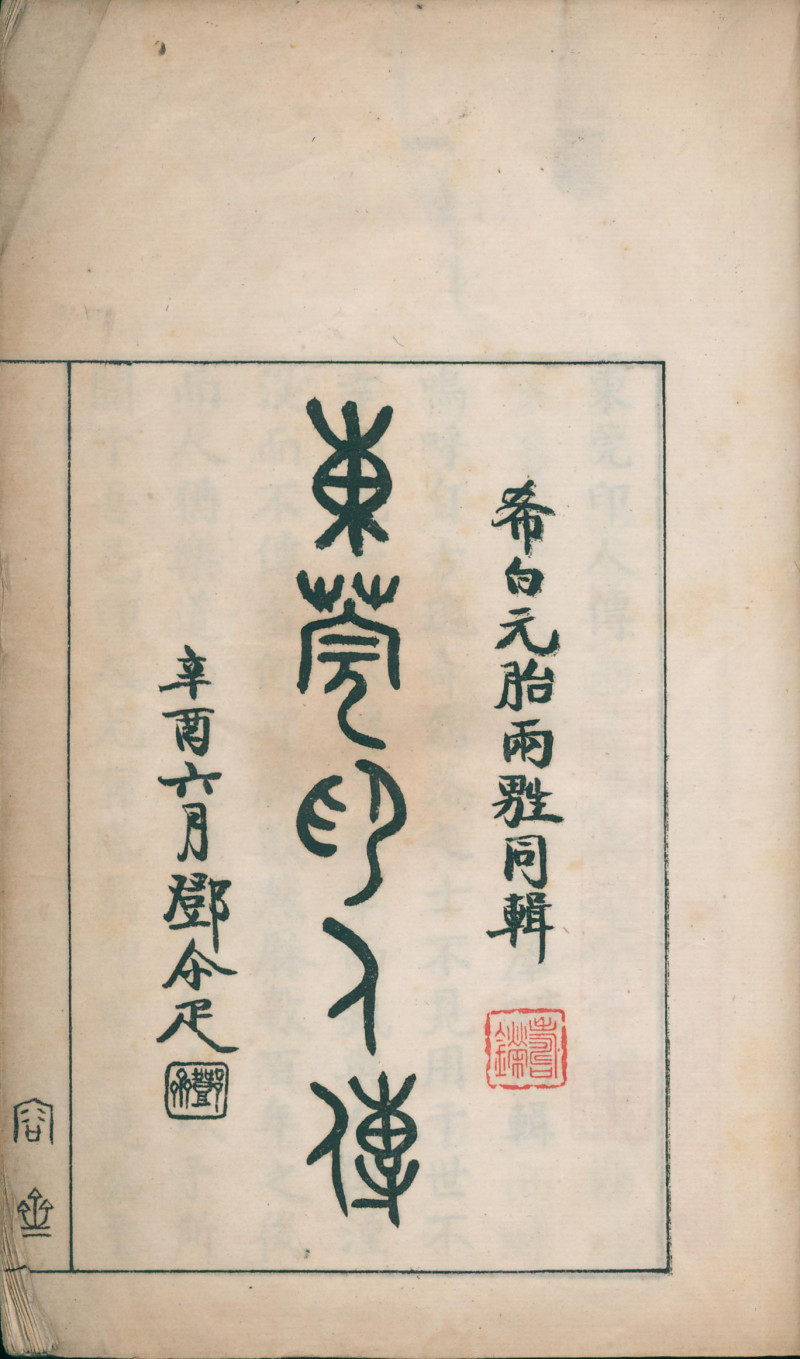 希白元胎兩甥同輯
東莞印人傳
辛酉六月鄧尒疋